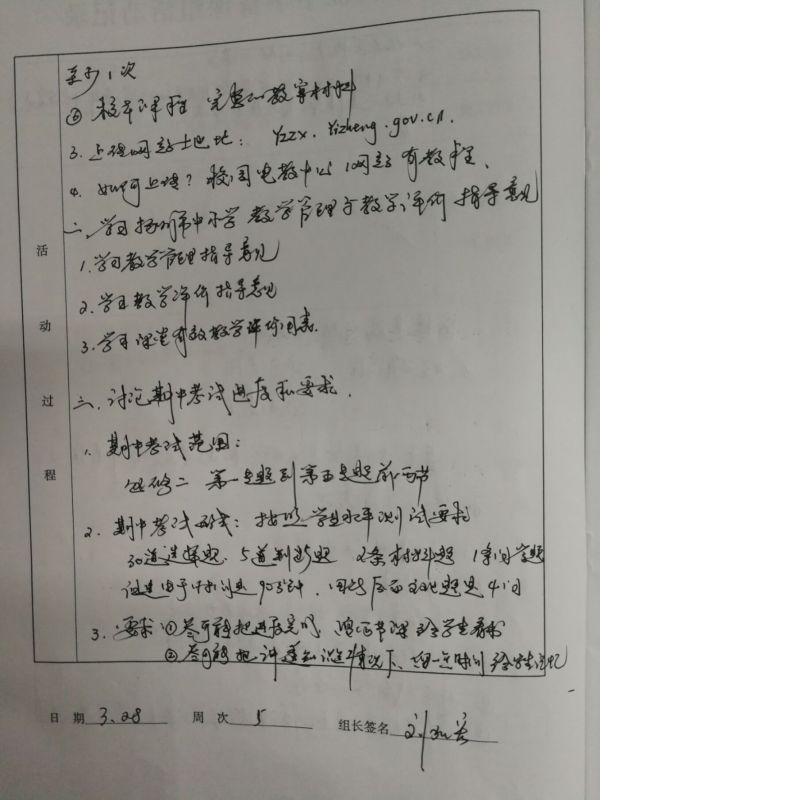 至少1次
③校本课程 完整的教案材料
3. 上传网站地址: yzzx.yizheng.gov.cn.
4. 如何上传? 校园电教中心 网站有教程.
二、学习扬州市中小学教学管理与教学评价指导意见
1. 学习教学管理指导意见
2. 学习教学评价指导意见
3. 学习课堂有效教学评价图表.
三、讨论期中考试进度和要求.
1. 期中考试范围:
必修二 第一专题到第五专题前两节
2. 期中考试形式: 按照学业水平测试要求
30道选择题. 5道判断题 2条材料题 1条问答题
90分钟. 4问
3. 要求 ①尽可能把进度完成, 两节课给学生看书
②尽可能把 情况下、留一定时间给学生记忆
活动过程
日 期 3.28 周 次 5 组长签名 刘